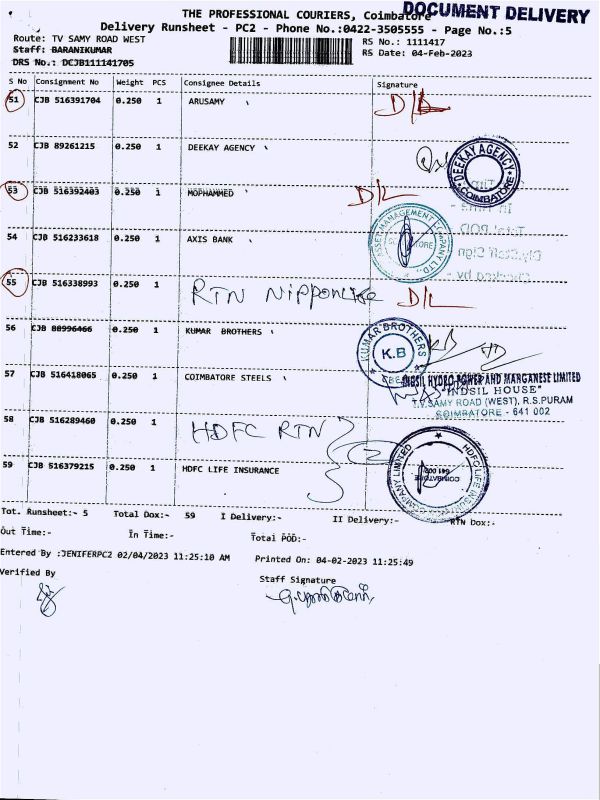 THE PROFESSIONAL COURIERS, Coimbatore
DOCUMENT DELIVERY
Delivery Runsheet - PC2 - Phone No.:0422-3505555 - Page No.:5
Route: TV SAMY ROAD WEST
RS No.: 1111417
Staff: BARANIKUMAR
RS Date: 04-Feb-2023
DRS No.: DCJB111141705
S No Consignment No Weight PCS Consignee Details Signature
51 CJB 516391704 0.250 1 ARUSAMY D/L
52 CJB 89261215 0.250 1 DEEKAY AGENCY
DEEKAY AGENCY
COIMBATORE
53 CJB 516392403 0.250 1 MOPHAMMED D/L
54 CJB 516233618 0.250 1 AXIS BANK
ASSET MANAGEMENT COMPANY LTD.
55 CJB 516338993 0.250 1 RTN NIPPONLIFE D/L
56 CJB 80996466 0.250 1 KUMAR BROTHERS
KUMAR BROTHERS
K.B
CBE
57 CJB 516418065 0.250 1 COIMBATORE STEELS
INDSIL HYDRO POWER AND MANGANESE LIMITED
"INDSIL HOUSE"
T.V.SAMY ROAD (WEST), R.S.PURAM
COIMBATORE - 641 002
58 CJB 516289460 0.250 1 HDFC RTN
59 CJB 516379215 0.250 1 HDFC LIFE INSURANCE
HDFC LIFE INSURANCE COMPANY LIMITED
COIMBATORE
641 002
Tot. Runsheet:- 5 Total Dox:- 59 I Delivery:- II Delivery:- RTN Dox:-
Out Time:- In Time:- Total POD:-
Entered By :JENIFERPC2 02/04/2023 11:25:10 AM Printed On: 04-02-2023 11:25:49
Verified By
Staff Signature